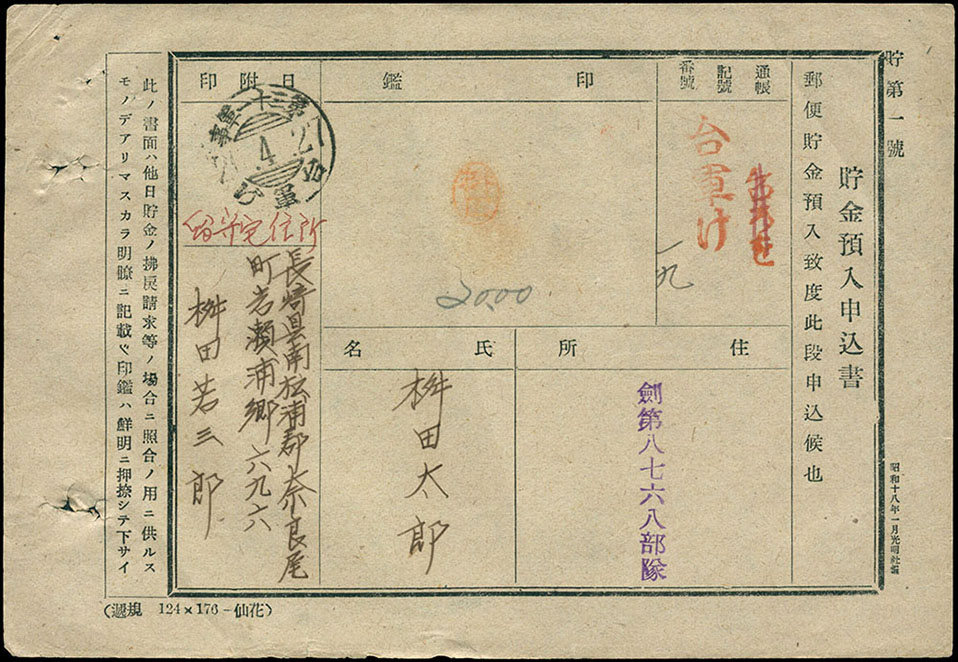 貯第一號
貯金預入申込書
昭和十八年一月光明社編
郵便貯金預入致度此段申込候也
通帳
記號
番號
台軍け
一九
印鑑
2000
住所
劍第八七六八部隊
氏名
桝田太郎
日附印
第三十一軍事
21
4
27
台軍け
留守宅住所
長崎县南松浦郡奈良尾
町岩瀬浦郷六九六
桝田若三郎
此ノ書面ハ他日貯金ノ拂戻請求等ノ場合ニ照合ノ用ニ供ルス
モノデアリマスカラ明瞭ニ記載シ印鑑ハ鮮明ニ押捺シテ下サイ
(遞規 124×176-仙花)